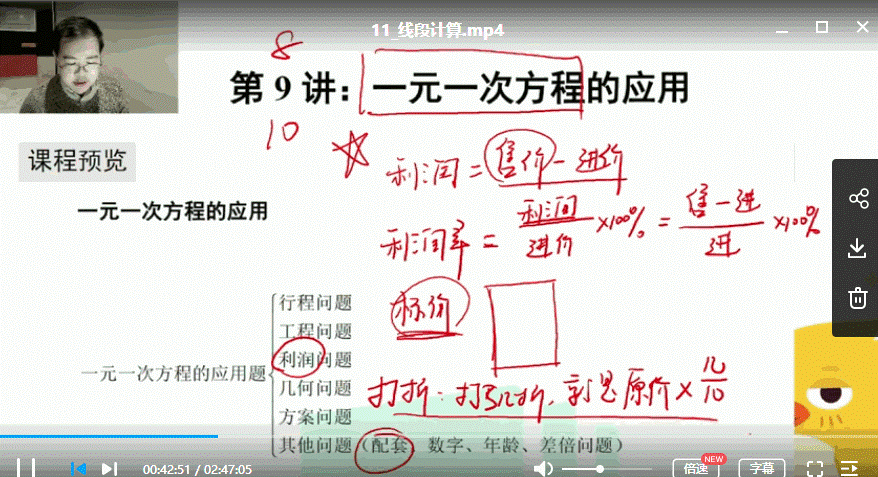 11_线段计算.mp4
8
第 9 讲：一元一次方程的应用
10
课程预览
利润 = 售价 - 进价
一元一次方程的应用
利润率 = 利润/进价 ×100% = 售-进/进 ×100%
标价
行程问题
工程问题
一元一次方程的应用题
利润问题
几何问题
打折：打几折，就是原价 × 几/10
方案问题
其他问题（配套、数字、年龄、差倍问题）
00:42:51 / 02:47:05
倍速
NEW
字幕